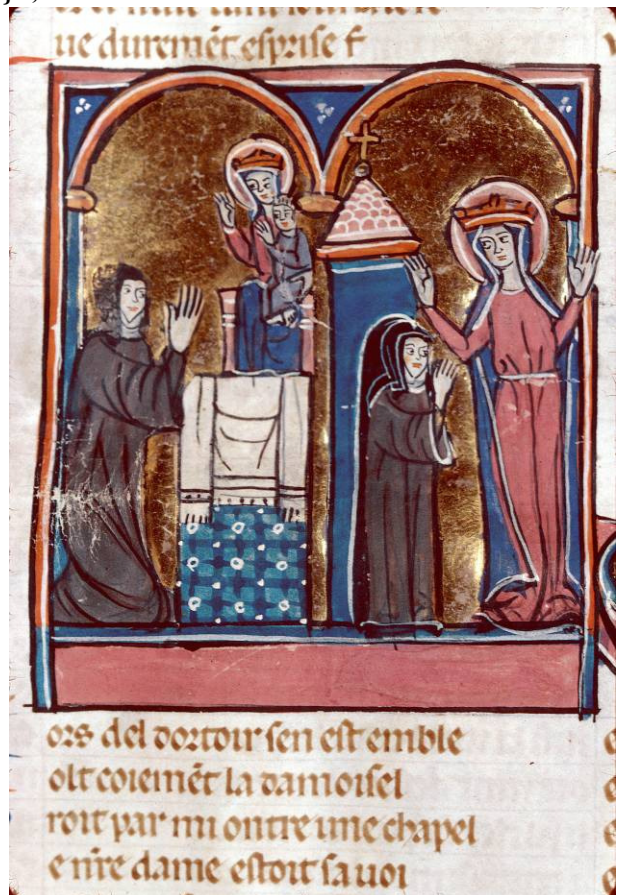 ue duremẽt esprise f
ors del dortoir sen est emble
olt coiemẽt la damoisel
roit par mi outre une chapel
e nr̃e dame estoit sa uoi